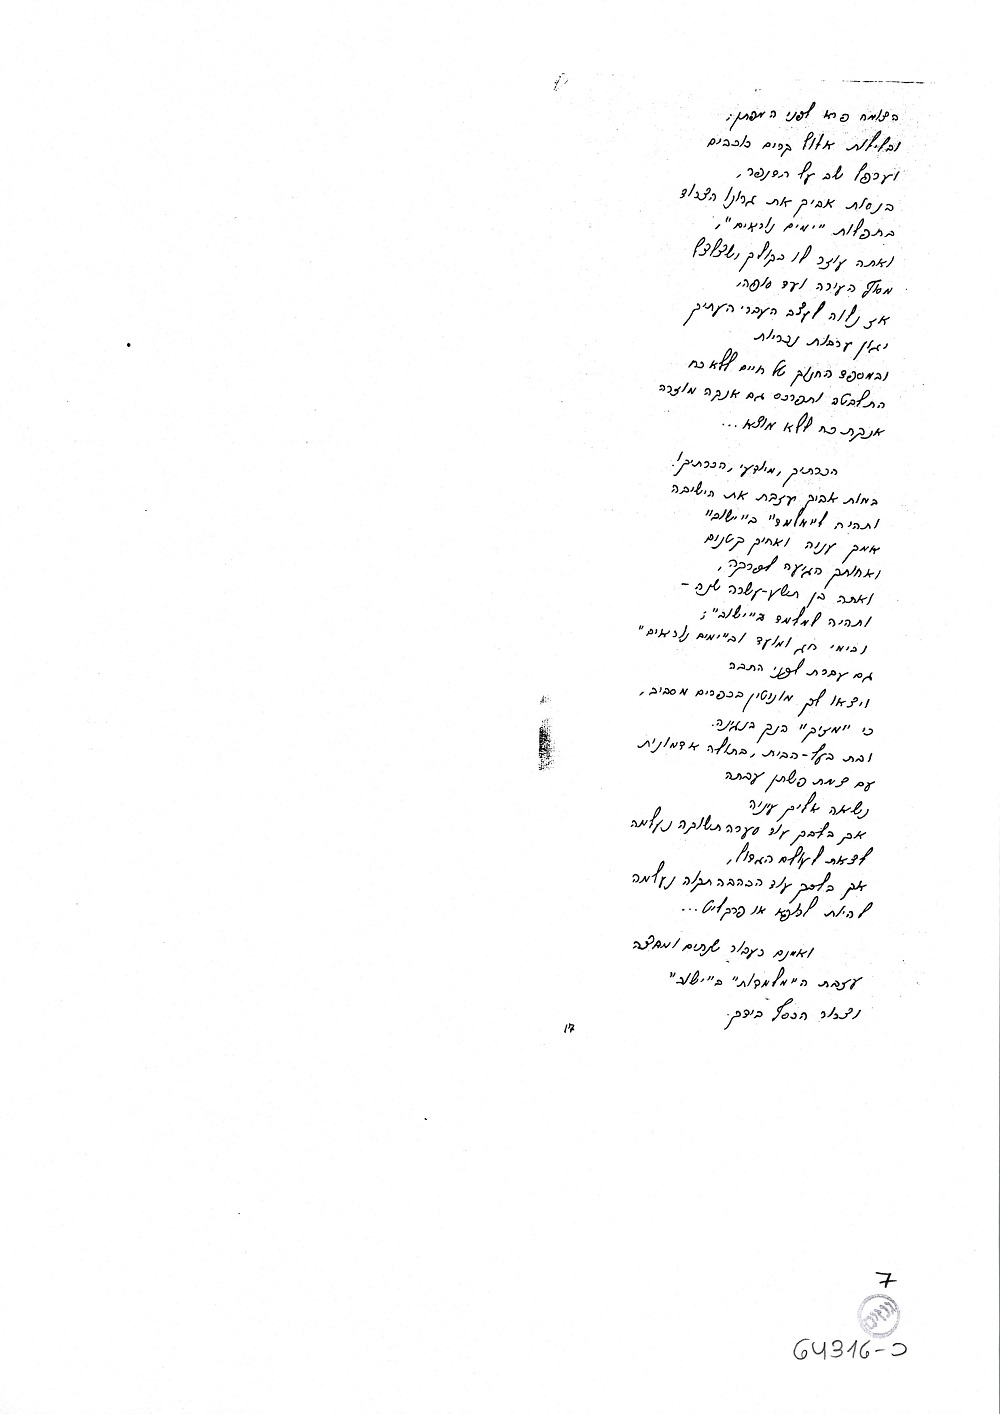 הצומח פרא לפני המפתן;
ובלילות אלול קרים כוכבים
וערפל שב על הדנפר,
בנסות אביך את גרונו הצרוד
בתפלות "ימים נוראים",
ואתה עוזר לו בקולך, שצלצל
מסוף העירה ועד סופה,
אז נלוה לעצב העברי העתיק
יגון ערבות נכריות
ובמספד החנוק של חיים ללא כח
התלבטה ותפרכס גם אנקה מוזרה
אנקת כח ללא מוצא...
הכרתיך, מיודעי, הכרתיך!
במות אביך עזבת את הישיבה
ותהיה ל"מלמד" ב"ישוב"
אמך עניה ואחיך קטנים
ואחותך הגיעה לפרקה,
ואתה בן תשע-עשרה שנה -
ותהיה למלמד ב"ישוב";
ובימי חג ומועד וב"ימים נוראים"
גם עברת לפני התבה
ויצאו לך מוניטין בכפרים מסביב,
כי "מזיק" הנך בנגינה.
ובת בעל-הבית, בתולה אדמונית
עם צמת פשתן עבתה
נשאה אליך עיניה
אך בלבך עוד סערה תשוקה נעלמה
לצאת לעולם הגדול,
אך בלבך עוד הבהבה תקוה נעלמה
להיות לרופא או פרקליט...
ואמנם כעבור שנתים ומחצה
עזבת ה"מלמדות" ב"ישוב"
וצרור הכסף בידך.
17
7
64316-כ